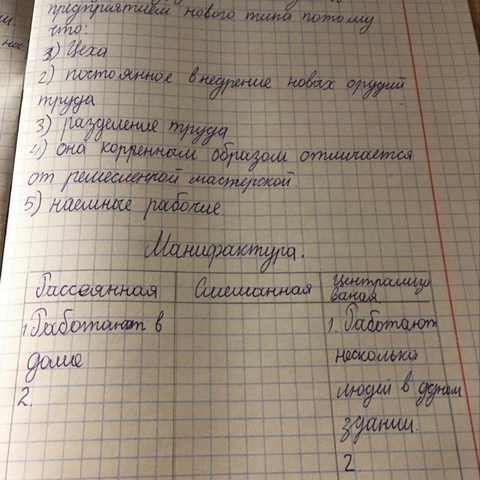 предприятием нового типа потому
что:
1) Цеха
2) постоянное внедрение новых орудий
труда
3) разделение труда
4) она корренным образом отличается
от ремесленной мастерской.
5) наемные рабочие
Манифактура.
Рассеянная
Смешанная
централизо
ваная.
1. Работают в
доме
2.
1. Работают
несколько
людей в одном
здании.
2.